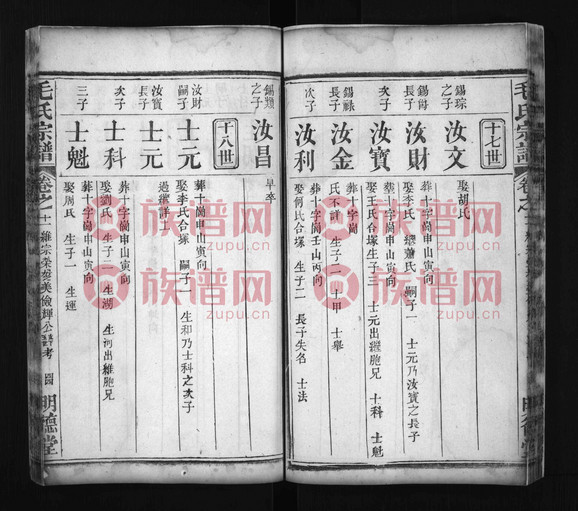 毛氏宗譜
十七世
錫琮之子
汝文
娶胡氏
汝財
葬十字崗申山寅向
娶李氏 繼蕭氏 嗣子一 士元乃汝寶之長子
次子
汝寶
葬十字崗申山寅向
娶王氏合塚生子三 士元出繼胞兄 士科 士魁
錫祿長子
汝金
葬十字崗
氏不詳 生子二 士甲 士舉
次子
汝利
葬十字崗壬山丙向
娶何氏合塚 生子二 長子失名 士法
錫類之子
汝昌
早卒
十八世
汝財嗣子
士元
葬十字崗申山寅向
娶李氏合塚 嗣子一 生和乃士科之次子
汝寶長子
士元
過繼詳上
次子
士科
葬十字崗申山寅向
娶劉氏 生子二 生潮 生河出繼胞兄
三子
士魁
葬十字崗申山寅向
娶周氏 生子一 生運
毛氏宗譜
卷之
十一
明德堂
族谱网
zupu.cn
族谱网
zupu.cn
族谱网
zupu.cn
族谱网
zupu.cn